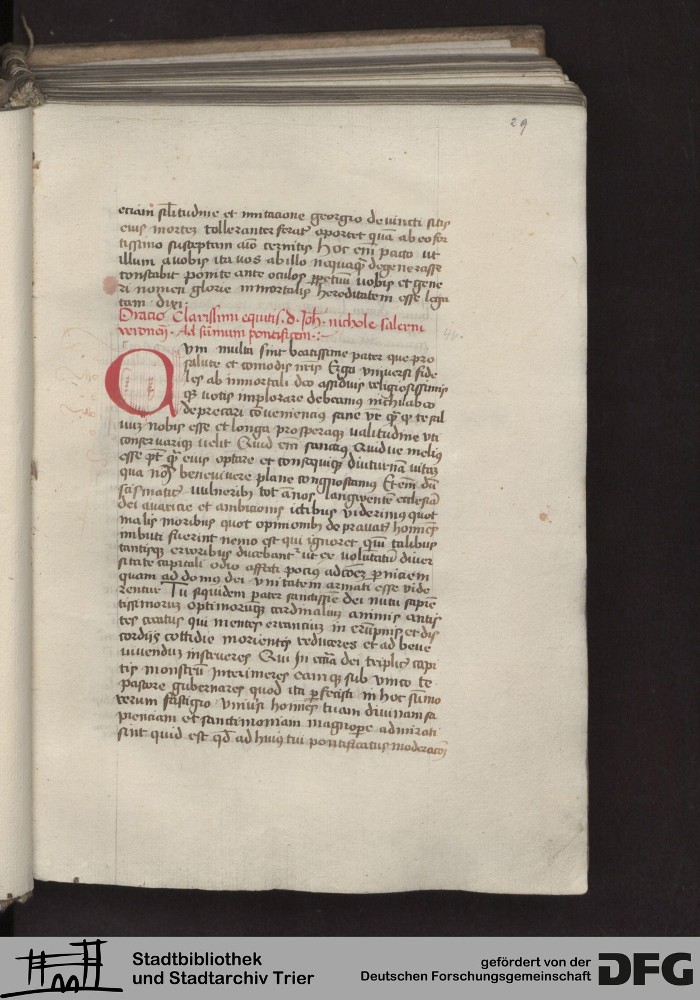 29
eciam silitudine et imitacione georgio devincti sitis
eius mortez tolleranter ferat oportet quam ab eo for
tissimo susceptam cernitis Hoc eni pacto ut
illum a uobis ita uos ab illo nequaq degenerasse
constabit ponite ante oculos uobis et gene
ri nomen glorie inmortalis hereditatem esse lega
tam dixi
Oracio Clarissimi equitis d. Joh nichole salerni
veronen Ad sumum pontificem
Qum multa sint beatissime pater que pro
salute et comodis nris Erga universi fide
les ab inmortali deo assidius religiosissimis
qz uotis implorare debeamus nichil ab eo
deprecari conueniencius sane ut te sal
uuz nobis esse et longa prosperaqz ualitudine uti
conseruarique uelit Quid eni sanctius Quidue melius
esse pt eius optare et consequi diuturna uitaz
qua nos bene uiuere plane congnoscamus Etem du
scismatis uulneribus tot annos langwente ecclesia
dei auaricie et ambicionis ictibus viderimus quot
malis moribus quot opinionibus deprauatis homines
imbuti fuerint nemo est qui ignoret qui talibus
tantisqz erroribus ducebant ut ex voluntatum diuer
sitate capitali odio affecti pocius ad perniciem
quam ad domus dei vnitatem armati esse vide
rentur Tu siquidem pater sanctissime dei nutu sapien
tissimoruz optimoruqz cardinaliuz animis antis
tes creatus qui mentes errantiuz in erumpnis et dis
cordijs cottidie morientes reduceres et ad bene
uiuendum instrueres Qui In ecclia dei triplicis capi
tis monstru interimeres eamqz sub vnico te
pastore gubernares quod ita perfecisti in hoc sumo
rerum fastigio vnius homines tuam diuinam sa
pienciam et sanctimoniam magnopere admirati
sint quid est qd ad huius tui pontificatus moderacoi
Stadtbibliothek
und Stadtarchiv Trier
gefördert von der
Deutschen Forschungsgemeinschaft
DFG